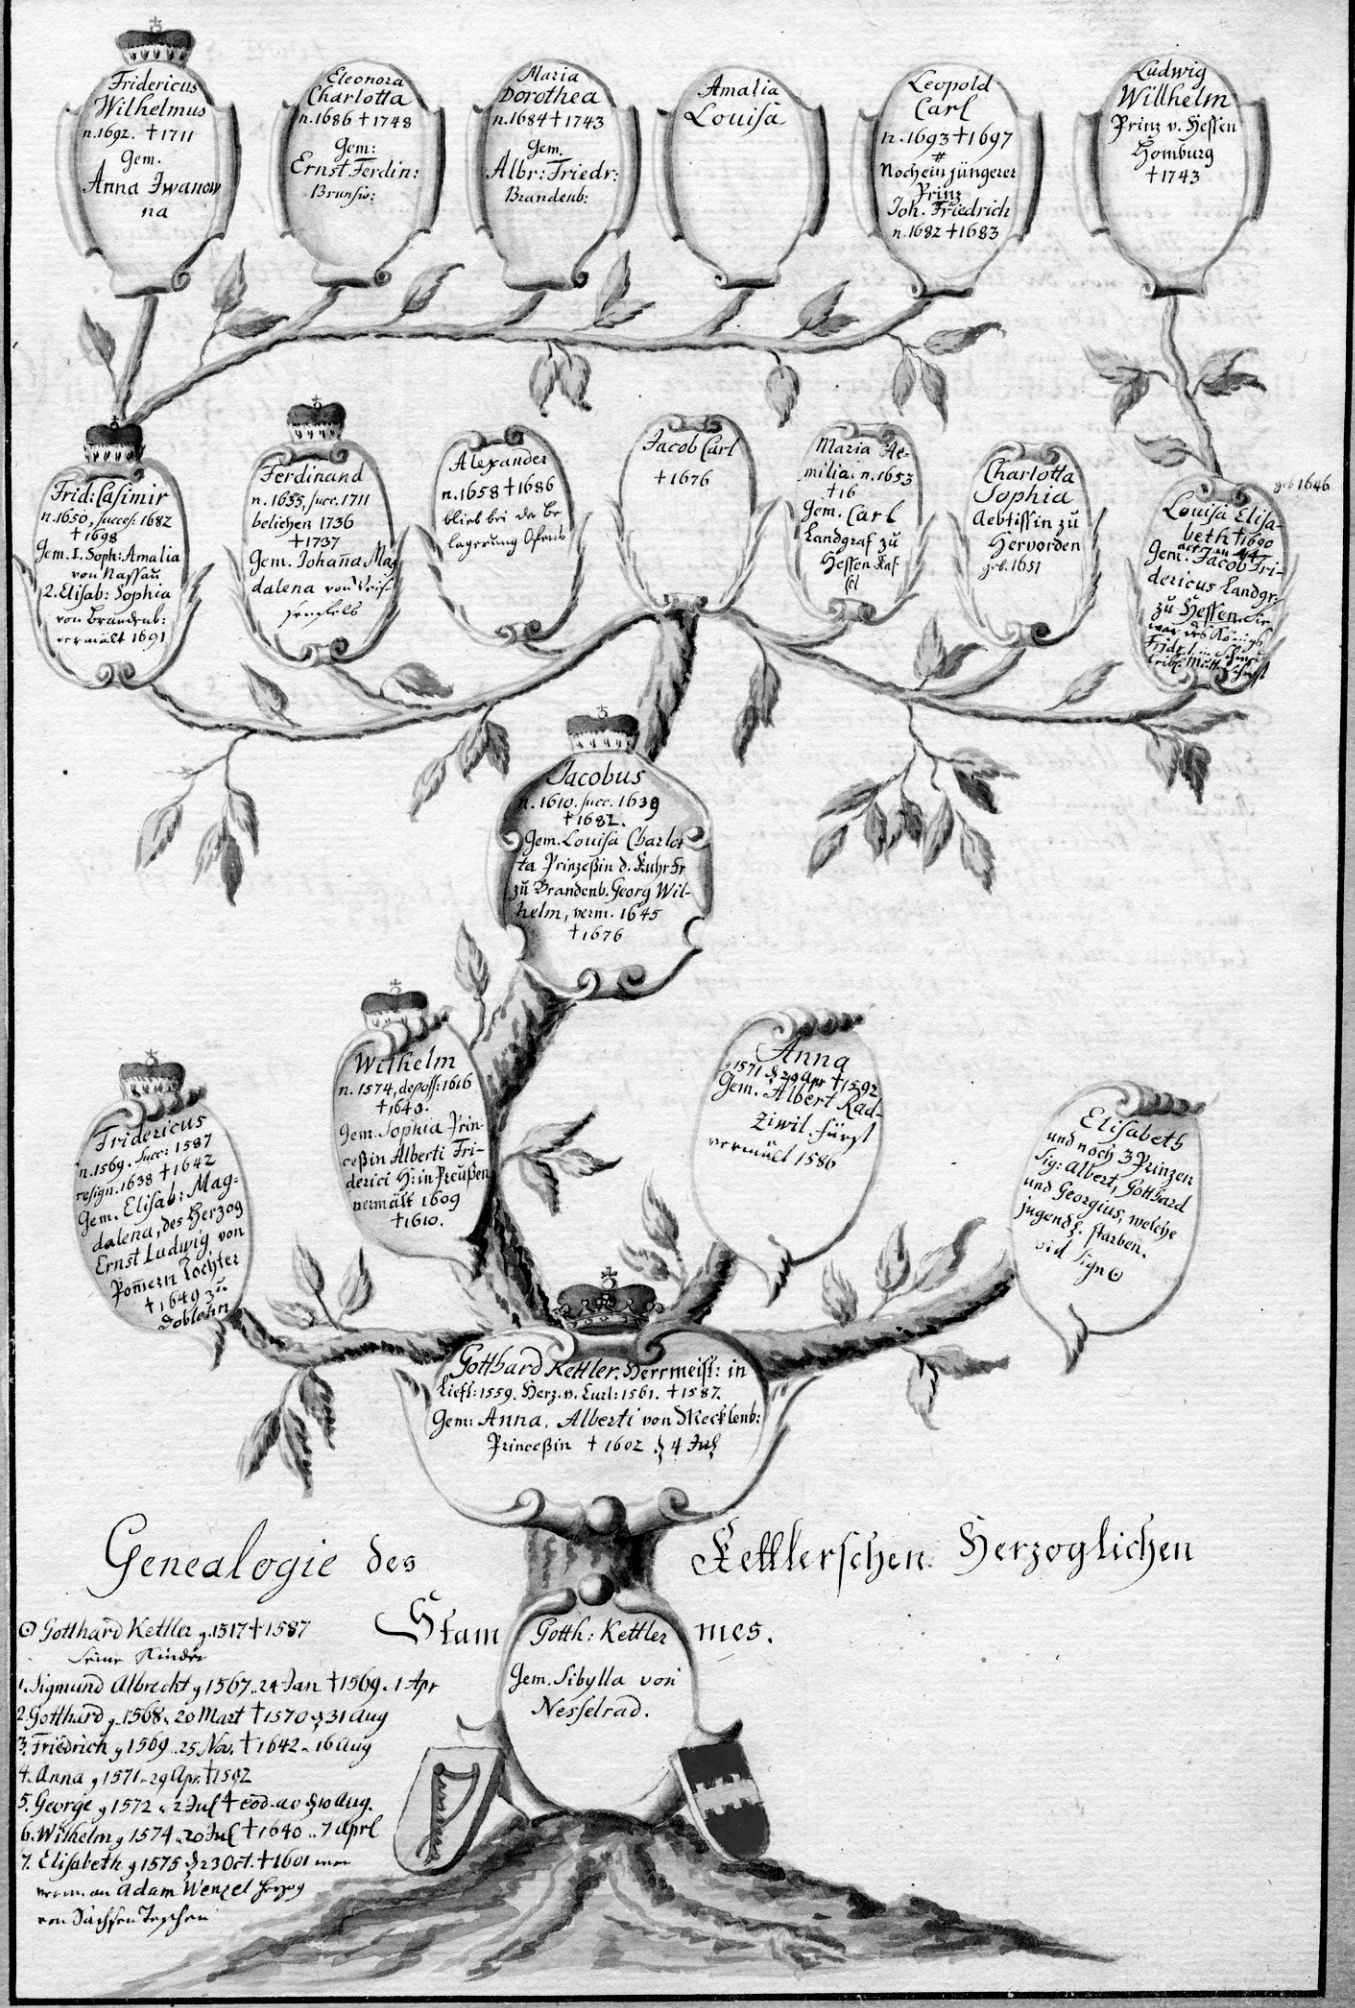 Fridericus
Wilhelmus
n. 1692. † 1711
Gem.
Anna Iwanow
na
Eleonora
Charlotta
n. 1686 † 1748
Gem:
Ernst Ferdin:
Brunsw:
Maria
Dorothea
n. 1684 † 1743
Gem.
Albr: Friedr:
Brandenb:
Amalia
Louisa
Leopold
Carl
n. 1693 † 1697
#
Noch ein jüngerer
Prinz
Joh. Friedrich
n. 1682 † 1683
Ludwig
Willhelm
Prinz v. Hessen
Homburg
† 1743
Frid: Casimir
n. 1650, succes: 1682
† 1698
Gem. I. Soph: Amalia
von Nassau
2. Elisab: Sophia
von Brandenb:
vermält 1691
Ferdinand
n. 1655, succ. 1711
beliehen 1736
† 1737
Gem. Johan̄a Mag
dalena von Weis-
senfels
Alexander
n. 1658 † 1686
blieb bei der Be
lagerung Ofens
Jacob Carl
† 1676
Maria Ae-
milia. n. 1653
† 16
Gem. Carl
Landgraf zu
Hessen Kas-
sel
Charlotta
Sophia
Aebtissin zu
Hervorden
geb. 1651
geb 1646
Louisa Elisa-
beth † 1690
Gem. Jacob Fri-
dericus Landgr:
zu Hessen. Sie
war des Königs
Fridr. I. in
Jacobus
n. 1610. succ. 1639
† 1682.
Gem. Louisa Charlot
ta Prinzeßin d. Kuhrfr
zu Brandenb. Georg Wil-
helm, verm. 1645
† 1676
Wilhelm
n. 1574, deposs: 1616
† 1640.
Gem. Sophia Prin-
ceßin Alberti Fri-
derici H: in Preußen
vermält 1609
† 1610.
Anna
1571 d 29 Apr † 1592
Gem. Albert Rad-
ziwil. Fürst
vermält 1586
Fridericus
n. 1569. succ: 1587
resign. 1638 † 1642
Gem. Elisab: Mag-
dalena, des Herzog
Ernst Ludwig von
Pom̄ern Tochter
† 1649 zu
Doblehn
Elisabeth
und noch 3 Prinzen
Sig: Albert, Gotthard
und Georgius, welche
jugendl. starben.
vid sign ⊙
Gotthard Kettler. Herrmeist: in
Liefl: 1559. Herz. v. Curl: 1561. † 1587.
Gem: Anna. Alberti von Mecklenb:
Princeßin † 1602 d 4 Jul
Genealogie des Kettlerschen Herzoglichen
Stam mes.
Gotth: Kettler
Gem. Sibylla von
Nesselrad.
⊙ Gotthard Kettler g. 1517 † 1587
Seine Kinder
1. Sigmund Albrecht g 1567. 24 Jan † 1569. 1 Apr
2. Gotthard g. 1568. 20 Mart † 1570 d 31 Aug
3. Friedrich g 1569 25 Nov. † 1642 16 Aug
4. Anna g 1571. 29 Apr. † 1592
5. George g 1572 2 Jul † eod. ao d 10 Aug.
6. Wilhelm g 1574 20 Jul † 1640 7 Aprl
7. Elisabeth g 1575 d 23 Oct. † 1601
verm. an Adam Wenzel Herzog
von Sachsen Teschen